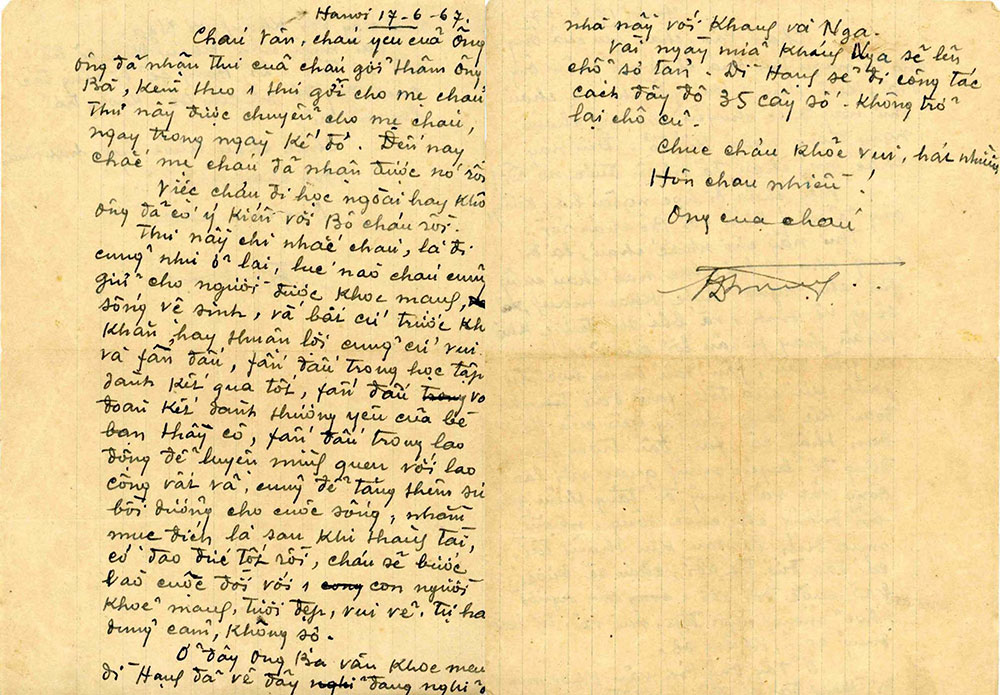 Hanoi 17-6-67.
Cháu Vân, cháu yêu cuả Ông
Ông đã nhận thư cuả cháu gởi thăm Ông
Bà, kèm theo 1 thư gởi cho mẹ cháu
Thư nầy được chuyển cho mẹ cháu,
ngay trong ngày kế đó. Đến nay
chắc mẹ cháu đã nhận được nó rồi
Việc cháu đi học ngoài hay Khô
Ông đã có ý Kiến với Bố cháu rồi.
Thư nầy chỉ nhắc cháu, là đi
cũng như ở lại, lúc nào cháu cũng
giữ cho người được Khoẻ mạng,
sống vệ sinh, và bất cứ trước Kh
Khăn, hay thuân lợi cung cứ vui
và fấn đấu, fấn đấu trong học tập
dành Kết qua tốt, fấn đấu trong vo
đoàn Kết dành thương yêu cuả bè
ban thầy cô, fấn đấu trong lao
động để luyện mình quen với lao
công vất vả, cũng để tăng thêm sứ
bồi dưỡng cho cuôc sống, nhằm
muc đích là sau Khi thàng tài,
có đao đức tốt rồi, cháu sẽ bước
vaò cuôc đời với 1 cong con người
Khoẻ mạng, tươi đẹp, vui vẻ. tự ha
dung cam, Không sợ.
Ở đây Ong Bà vẩn Khoẻ man
dì Hạng đã về đây nghỉ đang nghỉ ở
nhà nầy với Khang và Nga.
Vài ngày nưã Khang Nga sẽ lên
chổ sơ tán. Dì Hạng sẽ đi công tác
cách đây độ 35 cây số. Không trở
lại chỗ cũ.
Chuc cháu Khoẻ vui, hát nhiều
Hôn chau nhiều!
Ong cua cháu